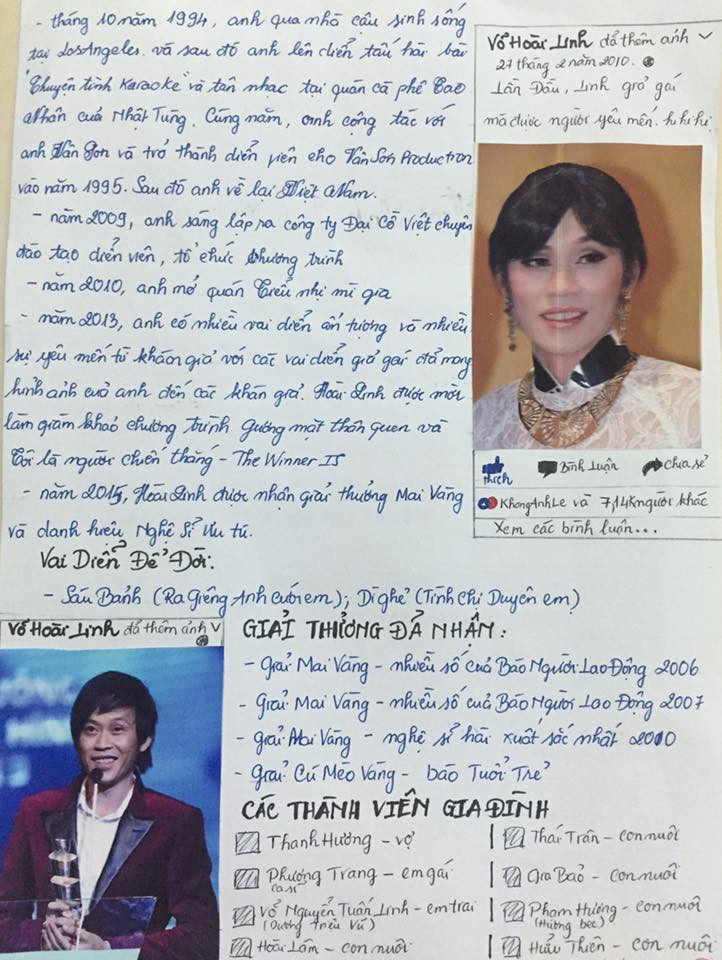 - tháng 10 năm 1994, anh qua nhờ cậu sinh sống
tại LosAngeles. và sau đó anh lên diễn tấu hài bài
"Chuyện tình Karaoke" và tân nhạc tại quán cà phê Tao
Nhân của Nhật Tùng. Cùng năm, anh cộng tác với
anh Vân Sơn và trở thành diễn viên cho Vân Sơn Production
vào năm 1995. Sau đó anh về lại Việt Nam.
- năm 2009, anh sáng lập ra công ty Đại Cồ Việt chuyên
đào tạo diễn viên, tổ chức chương trình
- năm 2010, anh mở quán Tiểu nhị mì gia
- năm 2013, anh có nhiều vai diễn ấn tượng và nhiều
sự yêu mến từ khán giả với các vai diễn giả gái đã mang
hình ảnh của anh đến các khán giả. Hoài Linh được mời
làm giám khảo chương trình Gương mặt thân quen và
Tôi là người chiến thắng - The Winner IS
- năm 2015, Hoài Linh được nhận giải thưởng Mai Vàng
và danh hiệu Nghệ Sĩ Ưu tú.
Vai Diễn Để Đời:
- Sáu Bảnh (Ra Giêng Anh cưới em); Dì ghẻ (Tình Chị Duyên em)
Võ Hoài Linh đã thêm ảnh
27 tháng 2 năm 2010.
Lần Đầu, Linh giả gái
mà được người yêu mến. hi hi hi
thích Bình Luận chia sẻ
KhongAnhLe và 7,14K người khác
Xem các bình luận...
Võ Hoài Linh đã thêm ảnh
GIẢI THƯỞNG ĐÃ NHẬN:
- Giải Mai Vàng - nhiều số của Báo Người Lao Động 2006
- Giải Mai Vàng - nhiều số của Báo Người Lao Động 2007
- Giải Mai Vàng - nghệ sĩ hài xuất sắc nhất 2010
- Giải Cù Mèo Vàng - báo Tuổi Trẻ
CÁC THÀNH VIÊN GIA ĐÌNH
Thanh Hương - vợ
Phương Trang - em gái
ca sĩ
Võ Nguyễn Tuấn Linh - em trai
(Dương Triệu Vũ)
Hoài Lâm - con nuôi
Thái Trân - con nuôi
Gia Bảo - con nuôi
Phạm Hương - con nuôi
(Hương béc)
Hữu Thiên - con nuôi